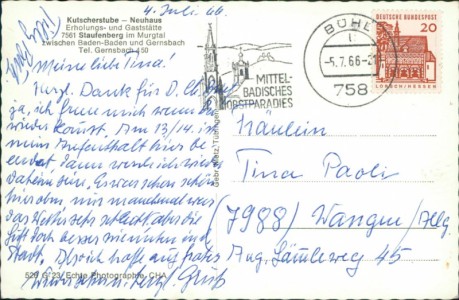 4. Juli 66.
Kutscherstube – Neuhaus
Erholungs- und Gaststätte
7561 Staufenberg im Murgtal
zwischen Baden-Baden und Gernsbach
Tel. Gernsbach 450
Meine liebe Tina!
Herzl. Dank für D.
ja, ich freue mich wenn Du
wieder kommst. Am 13/14. ist
mein Aufenthalt hier be
endet dann werde ich wieder
daheim sein. Es war schön
hier oben, nur manchmal war
das Wetter sehr schlecht aber die
Luft doch besser wie unten in der
Stadt. Also ich hoffe auf frohes
Wiedersehen u. herzl. Gruß
520 G 23 Echte Photographie CHA
Gebr. Metz, Tübingen
MITTEL-
BADISCHES
OBSTPARADIES
BÜHL
-5.7.66-21
758
DEUTSCHE BUNDESPOST
20
LORSCH/HESSEN
Fräulein
Tina Paoli
(7988) Wangen/Allg
Aug. Lämmleweg 45